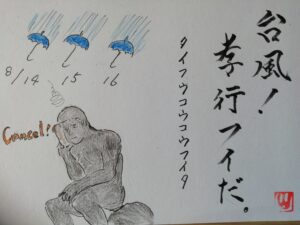 台風！
孝行フイだ。
タイフウコウコウフイタ
8/14 15 16
Cancel!